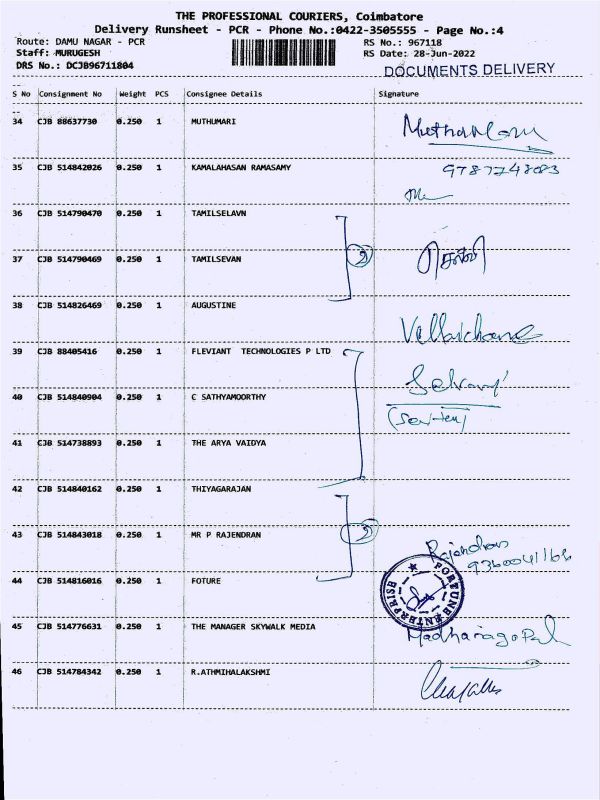 THE PROFESSIONAL COURIERS, Coimbatore
Delivery Runsheet - PCR - Phone No.:0422-3505555 - Page No.:4
Route: DAMU NAGAR - PCR RS No.: 967118
Staff: MURUGESH RS Date: 28-Jun-2022
DRS No.: DCJB96711804 DOCUMENTS DELIVERY
S No Consignment No Weight PCS Consignee Details Signature
34 CJB 88637730 0.250 1 MUTHUMARI
35 CJB 514842026 0.250 1 KAMALAHASAN RAMASAMY
9787748083
36 CJB 514790470 0.250 1 TAMILSELAVN
37 CJB 514790469 0.250 1 TAMILSEVAN 2
38 CJB 514826469 0.250 1 AUGUSTINE
39 CJB 88405416 0.250 1 FLEVIANT TECHNOLOGIES P LTD
40 CJB 514840904 0.250 1 C SATHYAMOORTHY
41 CJB 514738893 0.250 1 THE ARYA VAIDYA
42 CJB 514840162 0.250 1 THIYAGARAJAN
43 CJB 514843018 0.250 1 MR P RAJENDRAN 2 Rajendran
44 CJB 514816016 0.250 1 FOTURE FORTUNE ENTERPRISE
45 CJB 514776631 0.250 1 THE MANAGER SKYWALK MEDIA Madhanagopal
46 CJB 514784342 0.250 1 R.ATHMIHALAKSHMI